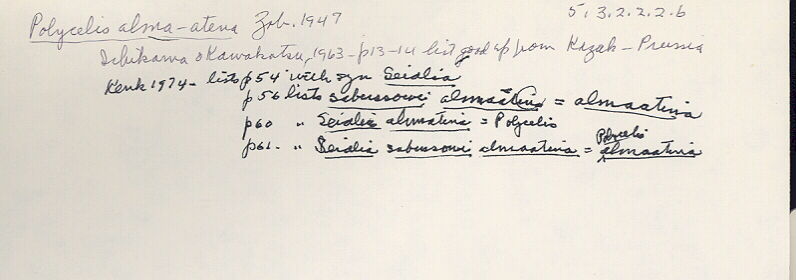 Polycelis alma-atena Zab. 1947 5.3.2.2.2.6
Ichikawa & Kawakatsu, 1963 - p13-14 list good sp from Kazak - Prussia
Kenk 1974 - lists p54 with syn Seidlia
p56 lists sabussowi almaatina = almaatina
p60 " Seidlia almatina = Polycelis
p61. " Seidlia sabussowi almaatina = Polycelis almaatina